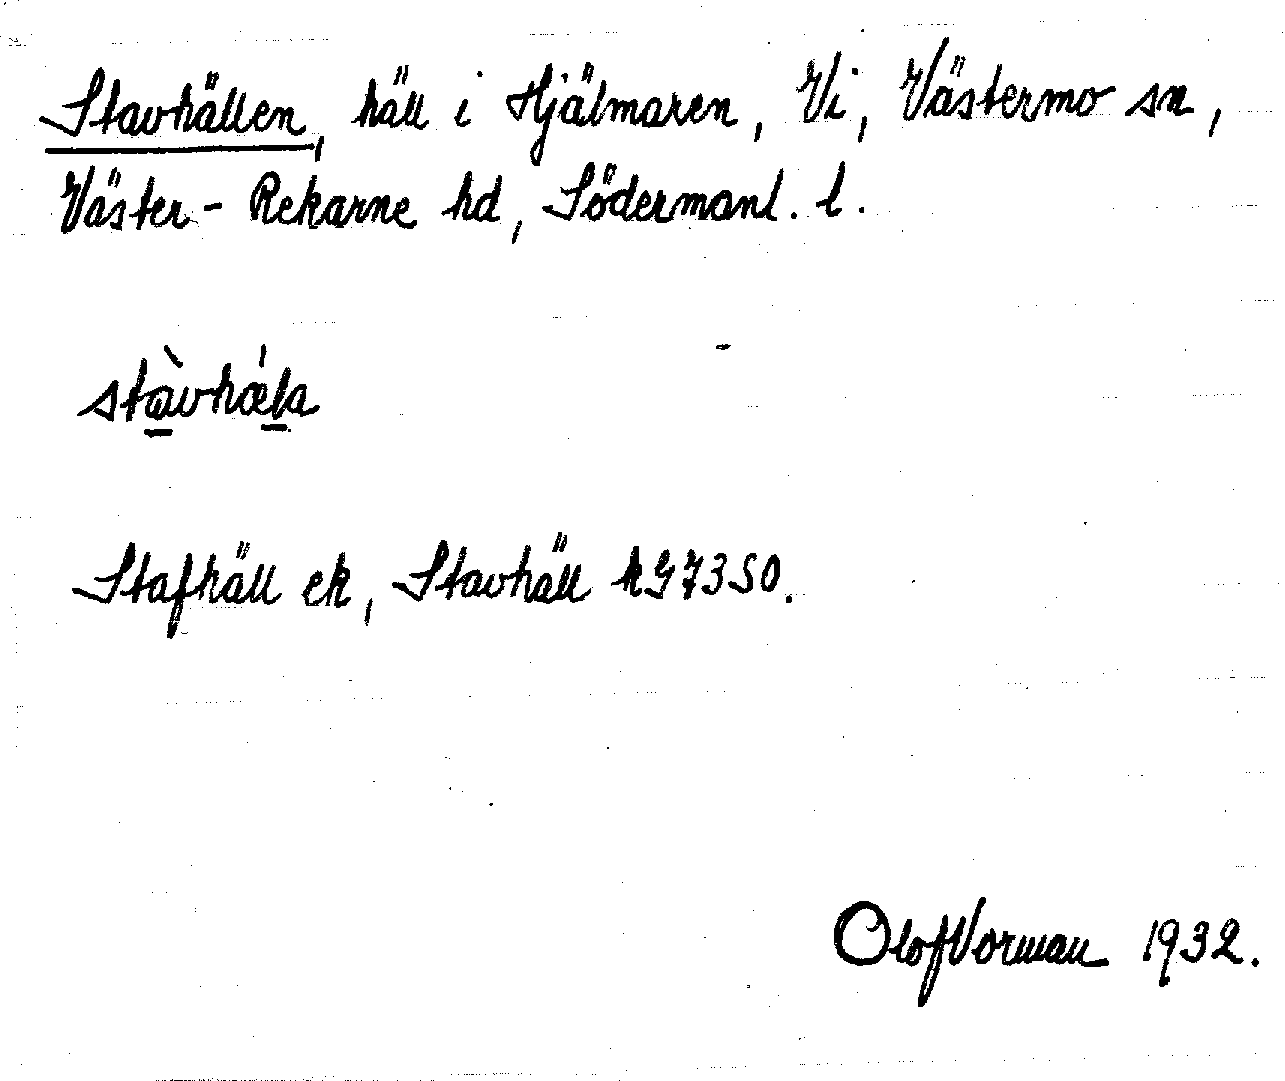 Stavhällen, häll i Hjälmaren, Vi, Västermo sn,
Väster-Rekarne hd, Södermanl. l.
stàvhǽla
Stafhäll ek, Stavhäll kG7350.
Olof Vorman 1932.